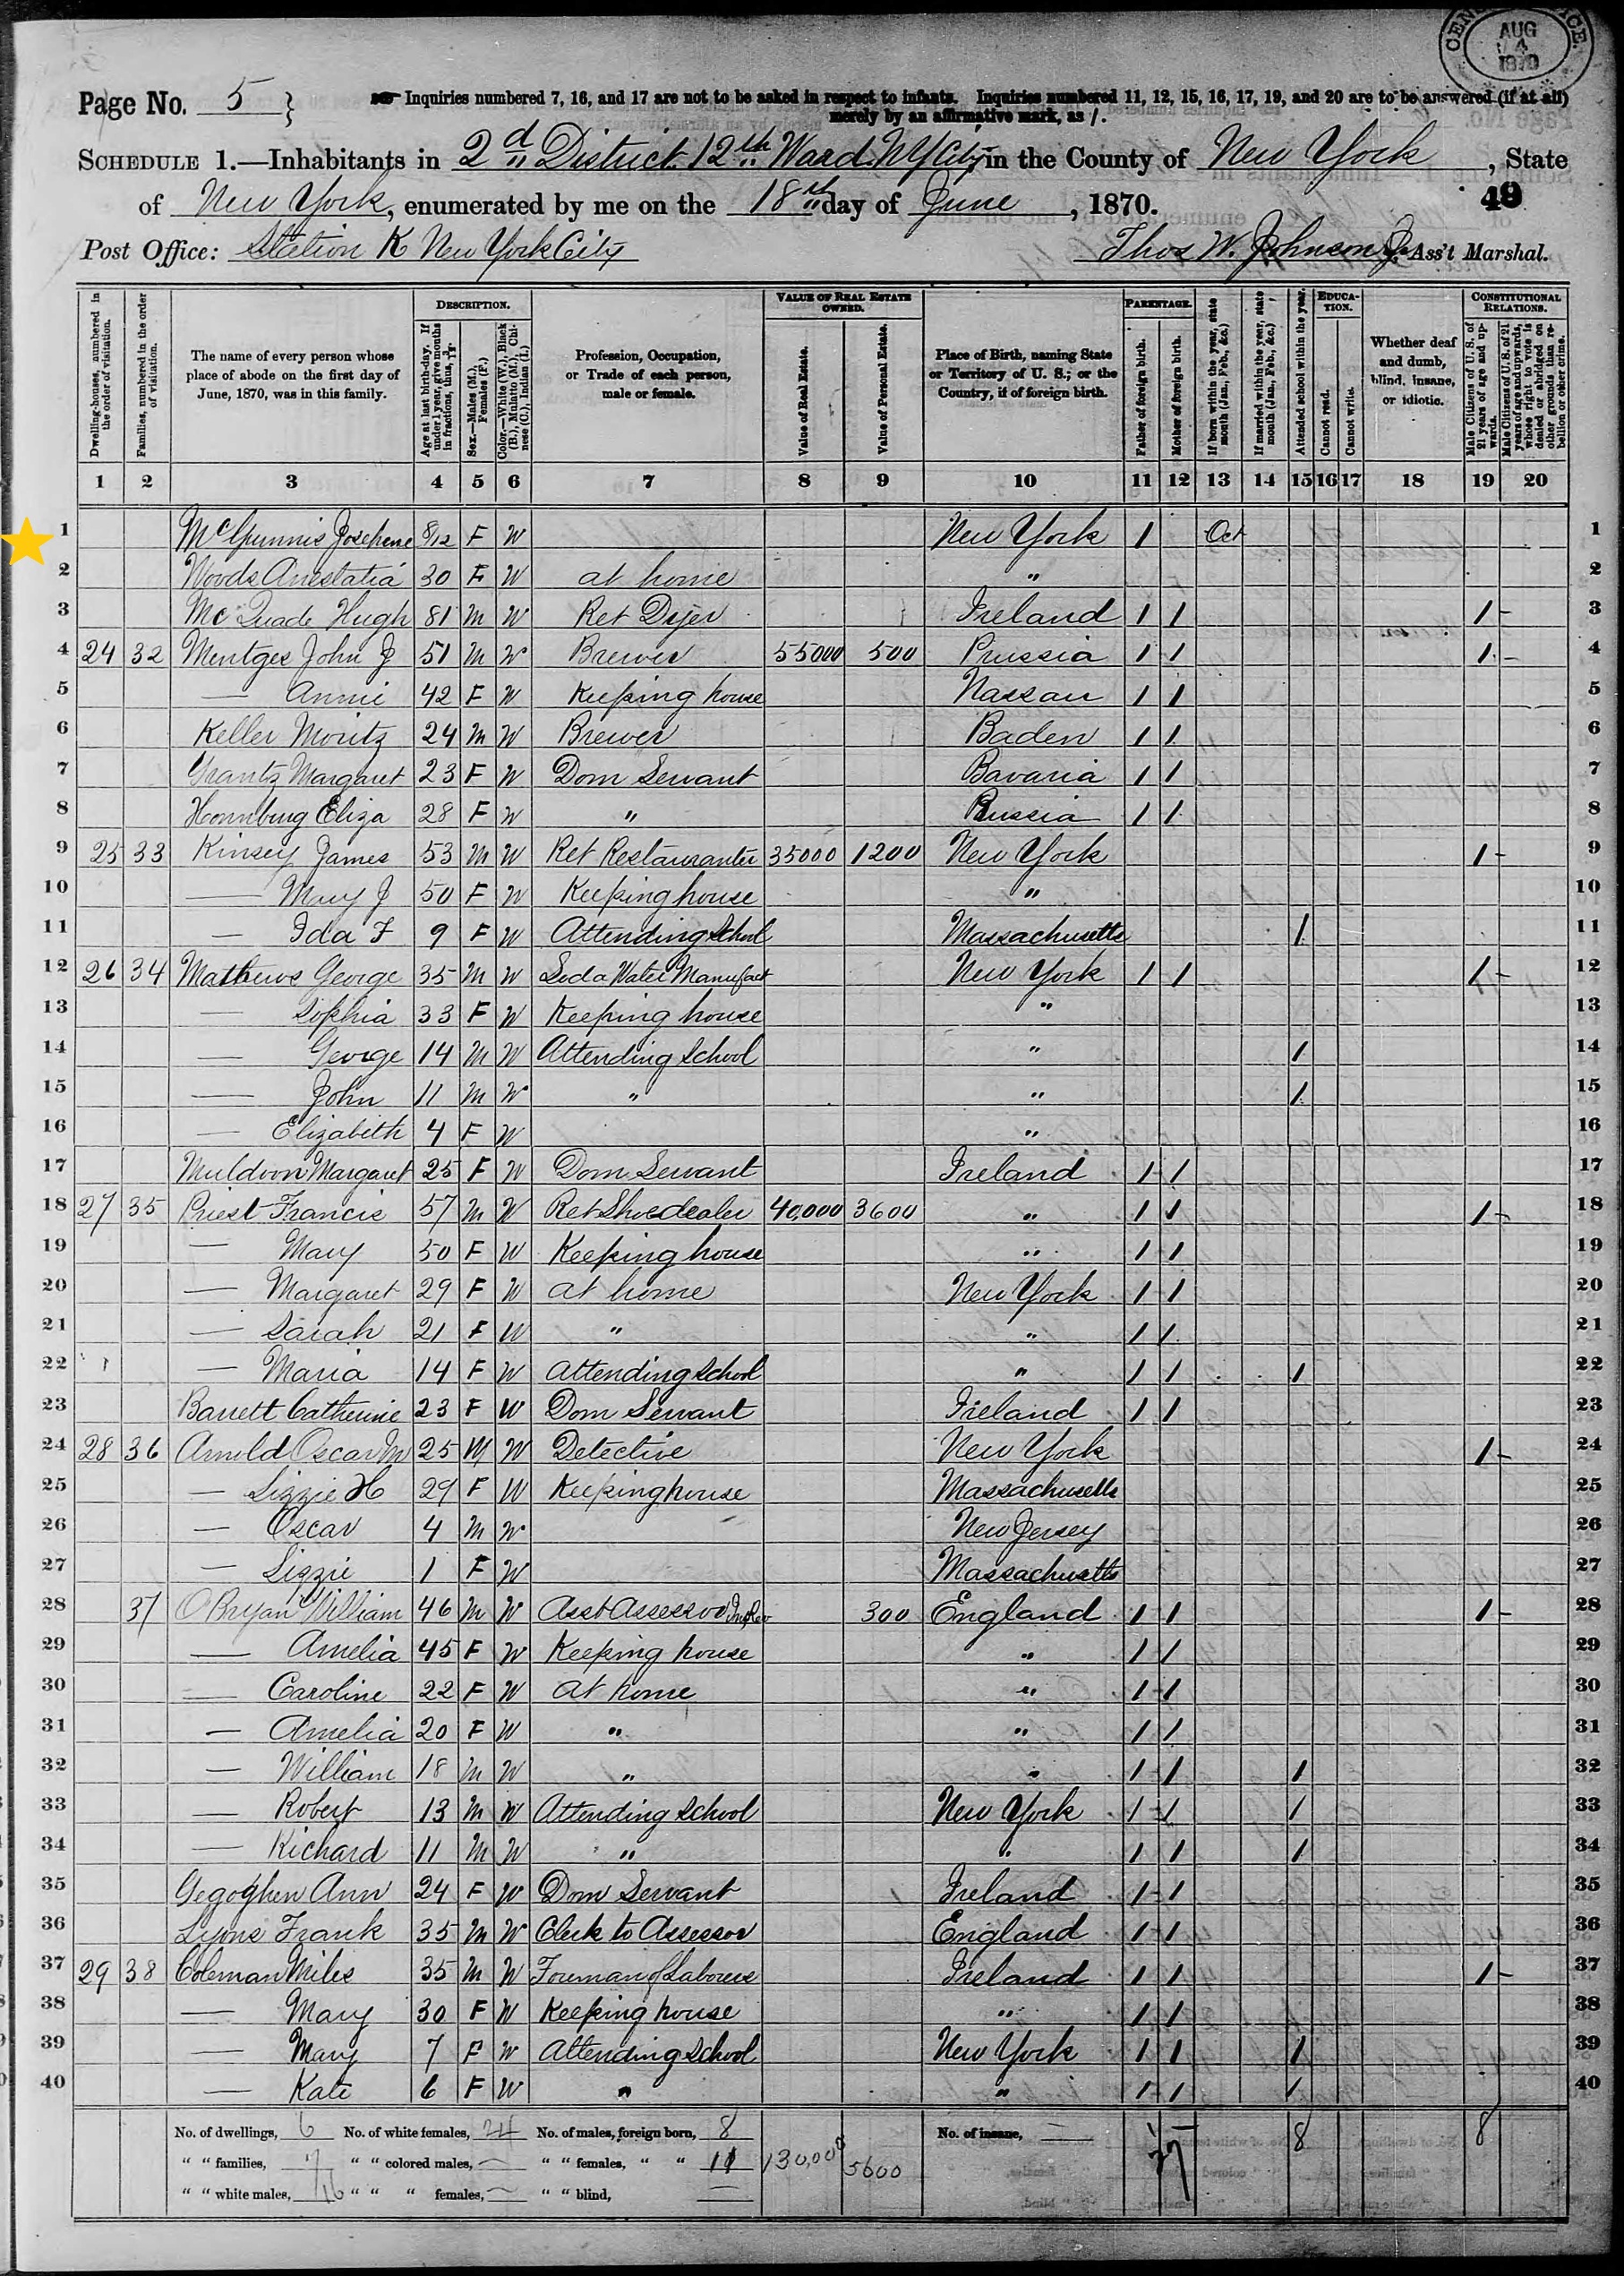 CENSUS OFFICE.
AUG
4
1870
Page No. 5 }
Inquiries numbered 7, 16, and 17 are not to be asked in respect to infants. Inquiries numbered 11, 12, 15, 16, 17, 19, and 20 are to be answered (if at all)
merely by an affirmative mark, as /.
SCHEDULE 1.—Inhabitants in 2d District 12th Ward NYCity in the County of New York, State
of New York, enumerated by me on the 18th day of June, 1870.
49
Post Office: Station K New York City
Thos W. Johnson Jr Ass't Marshal.
Dwelling-houses, numbered in the order of visitation.
Families, numbered in the order of visitation.
The name of every person whose place of abode on the first day of June, 1870, was in this family.
DESCRIPTION.
Age at last birth-day. If under 1 year, give months in fractions, thus, 3/12.
Sex.—Males (M.), Females (F.)
Color.—White (W.), Black (B.), Mulatto (M.), Chinese (C.), Indian (I.)
Profession, Occupation, or Trade of each person, male or female.
VALUE OF REAL ESTATE OWNED.
Value of Real Estate.
Value of Personal Estate.
Place of Birth, naming State or Territory of U. S.; or the Country, if of foreign birth.
PARENTAGE.
Father of foreign birth.
Mother of foreign birth.
If born within the year, state month (Jan., Feb., &c.)
If married within the year, state month (Jan., Feb., &c.)
Attended school within the year.
EDUCATION.
Cannot read.
Cannot write.
Whether deaf and dumb, blind, insane, or idiotic.
CONSTITUTIONAL RELATIONS.
Male Citizens of U. S. of 21 years of age and upwards.
Male Citizens of U. S. of 21 years of age and upwards, whose right to vote is denied or abridged on other grounds than rebellion or other crime.
1 2 3 4 5 6 7 8 9 10 11 12 13 14 15 16 17 18 19 20
1 McGunnis Josephene 8/12 F W New York / Oct 1
2 Woods Anestatia 30 F W at home " 2
3 McQuade Hugh 81 M W Ret Dyer Ireland / / / 3
4 24 32 Mentges John J 51 M W Brewer 55000 500 Prussia / / / 4
5 — Annie 42 F W Keeping house Nassau / / 5
6 Keller Moritz 24 M W Brewer Baden / / 6
7 Grantz Margaret 23 F W Dom Servant Bavaria / / 7
8 Eliza 28 F W " / / 8
9 25 33 Kinsey James 53 M W Ret Restauranter 35000 1200 New York / 9
10 — Mary J 50 F W Keeping house " 10
11 — Ida F 9 F W Attending School Massachusetts / 11
12 26 34 Mathews George 35 M W Soda Water Manufact New York / / / 12
13 — Sophia 33 F W Keeping house " 13
14 — George 14 M W Attending School " / 14
15 — John 11 M W " " / 15
16 — Elizabeth 4 F W " 16
17 Muldoon Margaret 25 F W Dom Servant Ireland / / 17
18 27 35 Priest Francis 57 M W Ret Shoedealer 40,000 3600 " / / / 18
19 — Mary 50 F W Keeping house " / / 19
20 — Margaret 29 F W at home New York / / 20
21 — Sarah 21 F W " " / / 21
22 — Maria 14 F W Attending School " / / / 22
23 Barrett Catherine 23 F W Dom Servant Ireland / / 23
24 28 36 Arnold Oscar M 25 M W Detective New York / 24
25 — Lizzie H 29 F W Keeping house Massachusetts 25
26 — Oscar 4 M W New Jersey 26
27 — Lizzie 1 F W Massachusetts 27
28 37 O'Bryan William 46 M W Asst Assessor Int Rev 300 England / / / 28
29 — Amelia 45 F W Keeping house " / / 29
30 — Caroline 22 F W at home " / / 30
31 — Amelia 20 F W " " / / 31
32 — William 18 M W " " / / / 32
33 — Robert 13 M W Attending School New York / / / 33
34 — Richard 11 M W " " / / / 34
35 Gegoghen Ann 24 F W Dom Servant Ireland / / 35
36 Lyons Frank 35 M W Clerk to Assessor England / / 36
37 29 38 Coleman Miles 35 M W Foreman of Laborers Ireland / / / 37
38 — Mary 30 F W Keeping house " / / 38
39 — Mary 7 F W Attending School New York / / / 39
40 — Kate 6 F W " " / / / 40
No. of dwellings, 6 No. of white females, 24 No. of males, foreign born, 8 130,000 5600 No. of insane, — 8 8
" " families, 7 " " colored males, — " " females, " " 11
" " white males, 16 " " " females, — " " blind, —